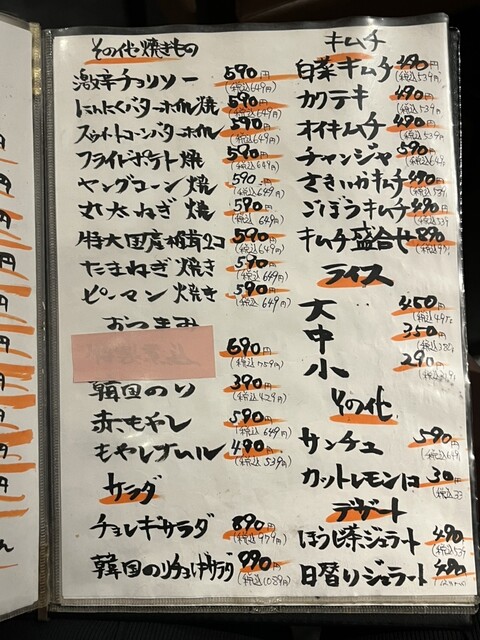 その他・焼きもの
激辛チョリソー 590円 (税込649円)
にんにくバターホイル焼 590円 (税込649円)
スウィートコーンバターホイル 590円 (税込649円)
フライドポテト焼 590円 (税込649円)
ヤングコーン焼 590円 (税込649円)
丸太ねぎ焼 590円 (税込649円)
特大国産椎茸2コ 590円 (税込649円)
たまねぎ焼き 590円 (税込649円)
ピーマン焼き 590円 (税込649円)
おつまみ
690円 (税込759円)
韓国のり 390円 (税込429円)
赤もやし 590円 (税込649円)
もやしナムル 490円 (税込539円)
サラダ
チョレギサラダ 890円 (税込979円)
韓国のりチョレギサラダ 990円 (税込1089円)
キムチ
白菜キムチ 490円 (税込539円)
カクテキ 490円 (税込539円)
オイキムチ 490円 (税込539
チャンジャ 590円 (税込649
さきいかキムチ 490円 (税込539
ごぼうキムチ 490円 (税込539
キムチ盛合せ 890円
ライス
大 450円 (税込495
中 350円 (税込385
小 290円
その他
サンチュ 590円 (税込649
カットレモン1コ 30円 (税込33
デザート
ほうじ茶ジェラート 490 (税込539
日替りジェラート 490